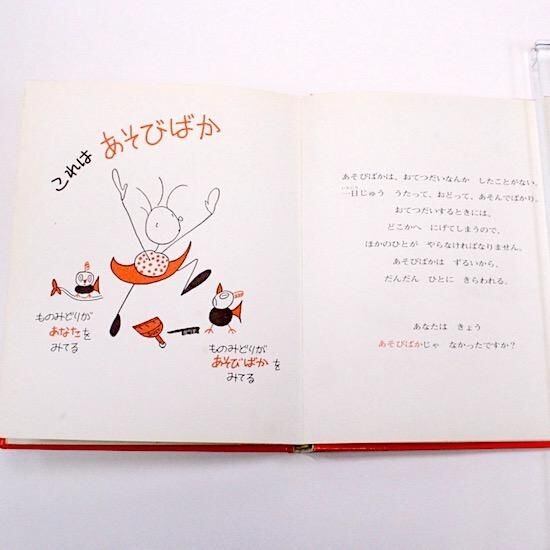 これは あそびばか
ものみどりが
あなたを
みてる
ものみどりが
あそびばかを
みてる
あそびばかは、おてつだいなんか したことがない。
一日じゅう うたって、おどって、あそんでばかり。
おてつだいするときには、
どこかへ にげてしまうので、
ほかのひとが やらなければなりません。
あそびばかは ずるいから、
だんだん ひとに きらわれる。
あなたは きょう
あそびばかじゃ なかったですか？